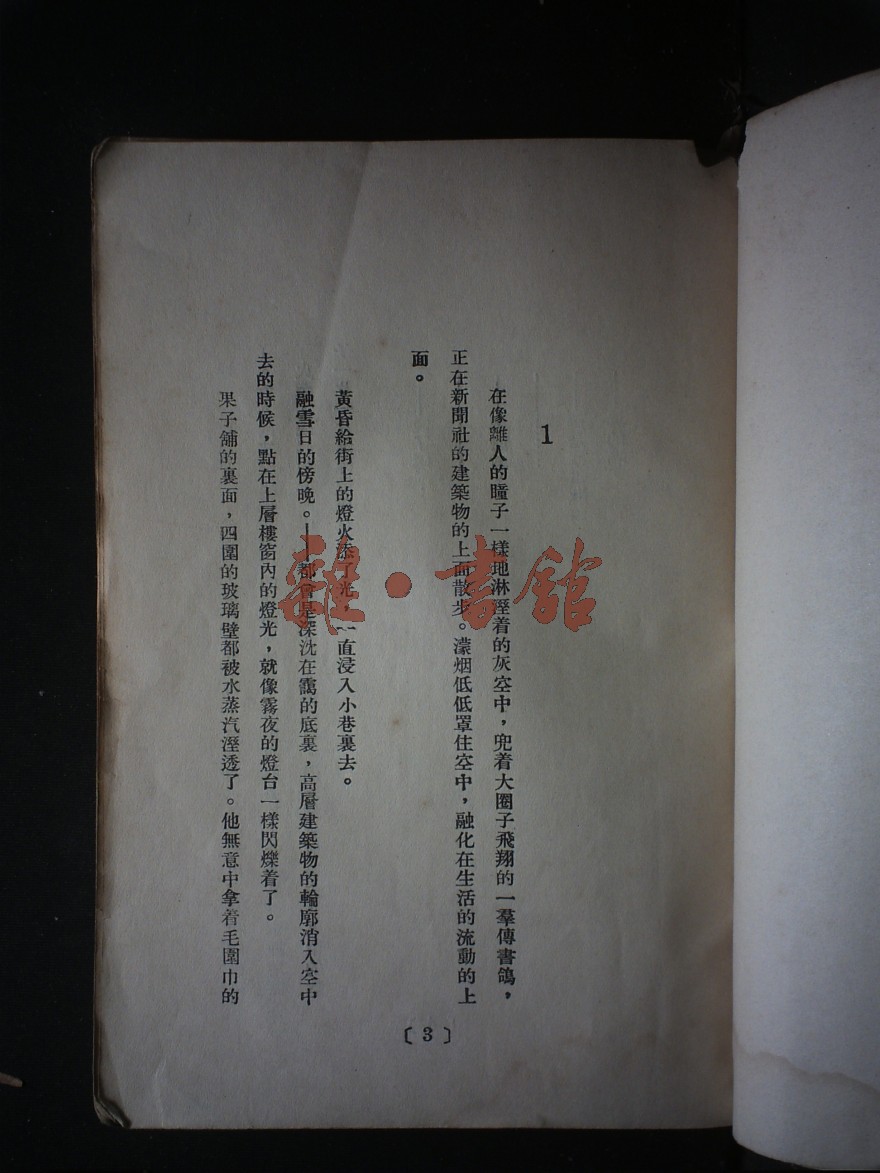 1
在像離人的瞳子一樣地淋溼着的灰空中，兜着大圈子飛翔的一羣傳書鴿，
正在新聞社的建築物的上面散步。濛烟低低罩住空中，融化在生活的流動的上
面。
黃昏給街上的燈火添了光，一直浸入小巷裏去。
融雪日的傍晚。——都會是深沈在靄的底裏，高層建築物的輪廓消入空中
去的時候，點在上層樓窗內的燈光，就像霧夜的燈台一樣閃爍着了。
果子舖的裏面，四圍的玻璃壁都被水蒸汽溼透了。他無意中拿着毛圍巾的
〔3〕
雜·書館